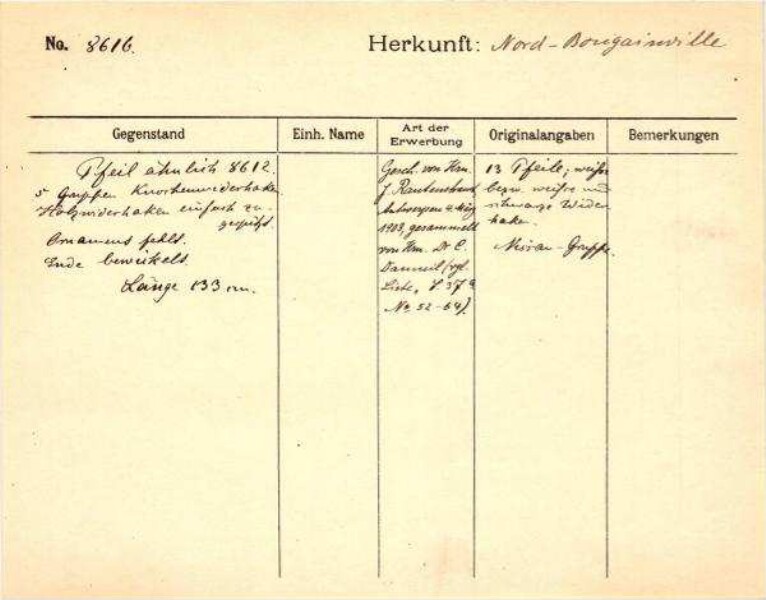 No. 8616.
Herkunft: Nord-Bougainville
Gegenstand
Einh. Name
Art der
Erwerbung
Originalangaben
Bemerkungen
Pfeil ähnlich 8612.
5 Gruppen Knochenwiderhaken
Holzwiderhaken einfach zu-
gespitzt.
Ornament fehlt.
Ende bewickelt.
Länge 133 cm.
Gesch. von Hrn.
J.
Antwerpen
1903, gesammelt
von Hrn. Dr C.
Danneil (vgl.
Liste, S. 37
No. 52-64).
13 Pfeile, weisse
bezw. weisse und
schwarze Wider
haken.
Nissan-Gruppe.